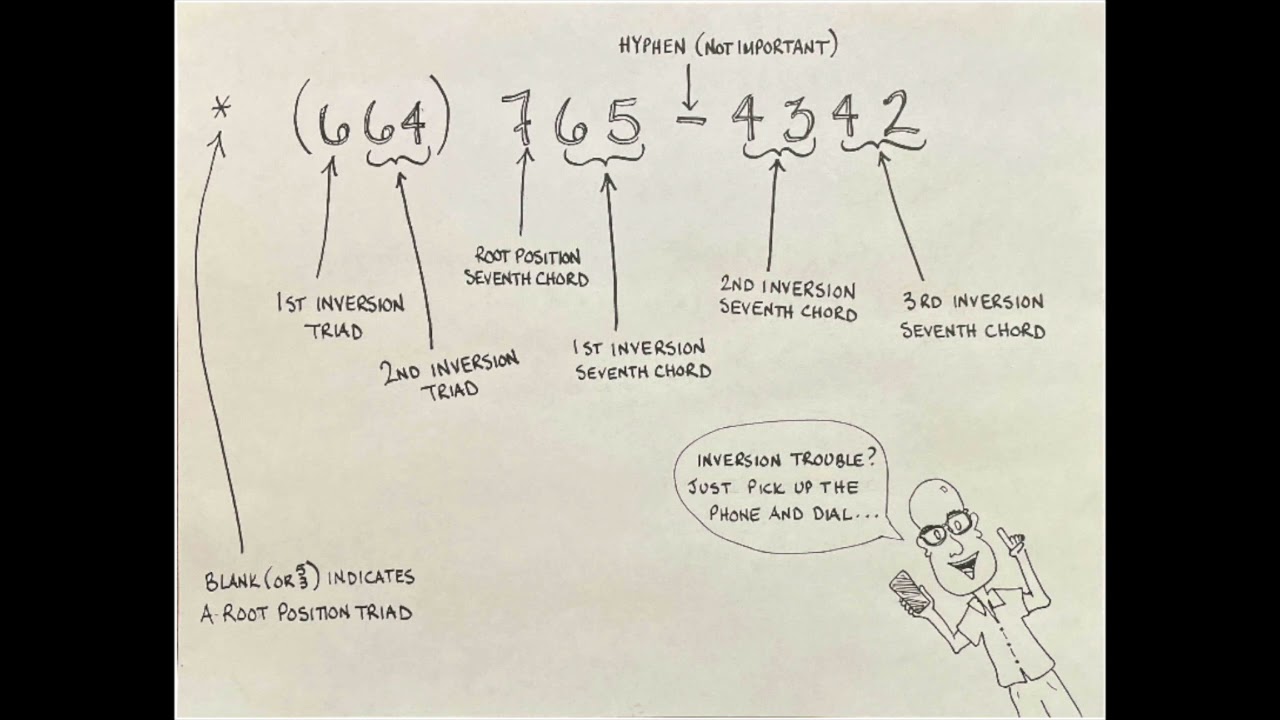 HYPHEN (NOT IMPORTANT)
* (664) 765 - 4342
ROOT POSITION
SEVENTH CHORD
1ST INVERSION
TRIAD
2ND INVERSION
SEVENTH CHORD
3RD INVERSION
SEVENTH CHORD
2ND INVERSION
TRIAD
1ST INVERSION
SEVENTH CHORD
INVERSION TROUBLE?
JUST PICK UP THE
PHONE AND DIAL...
BLANK (OR 5/3) INDICATES
A ROOT POSITION TRIAD